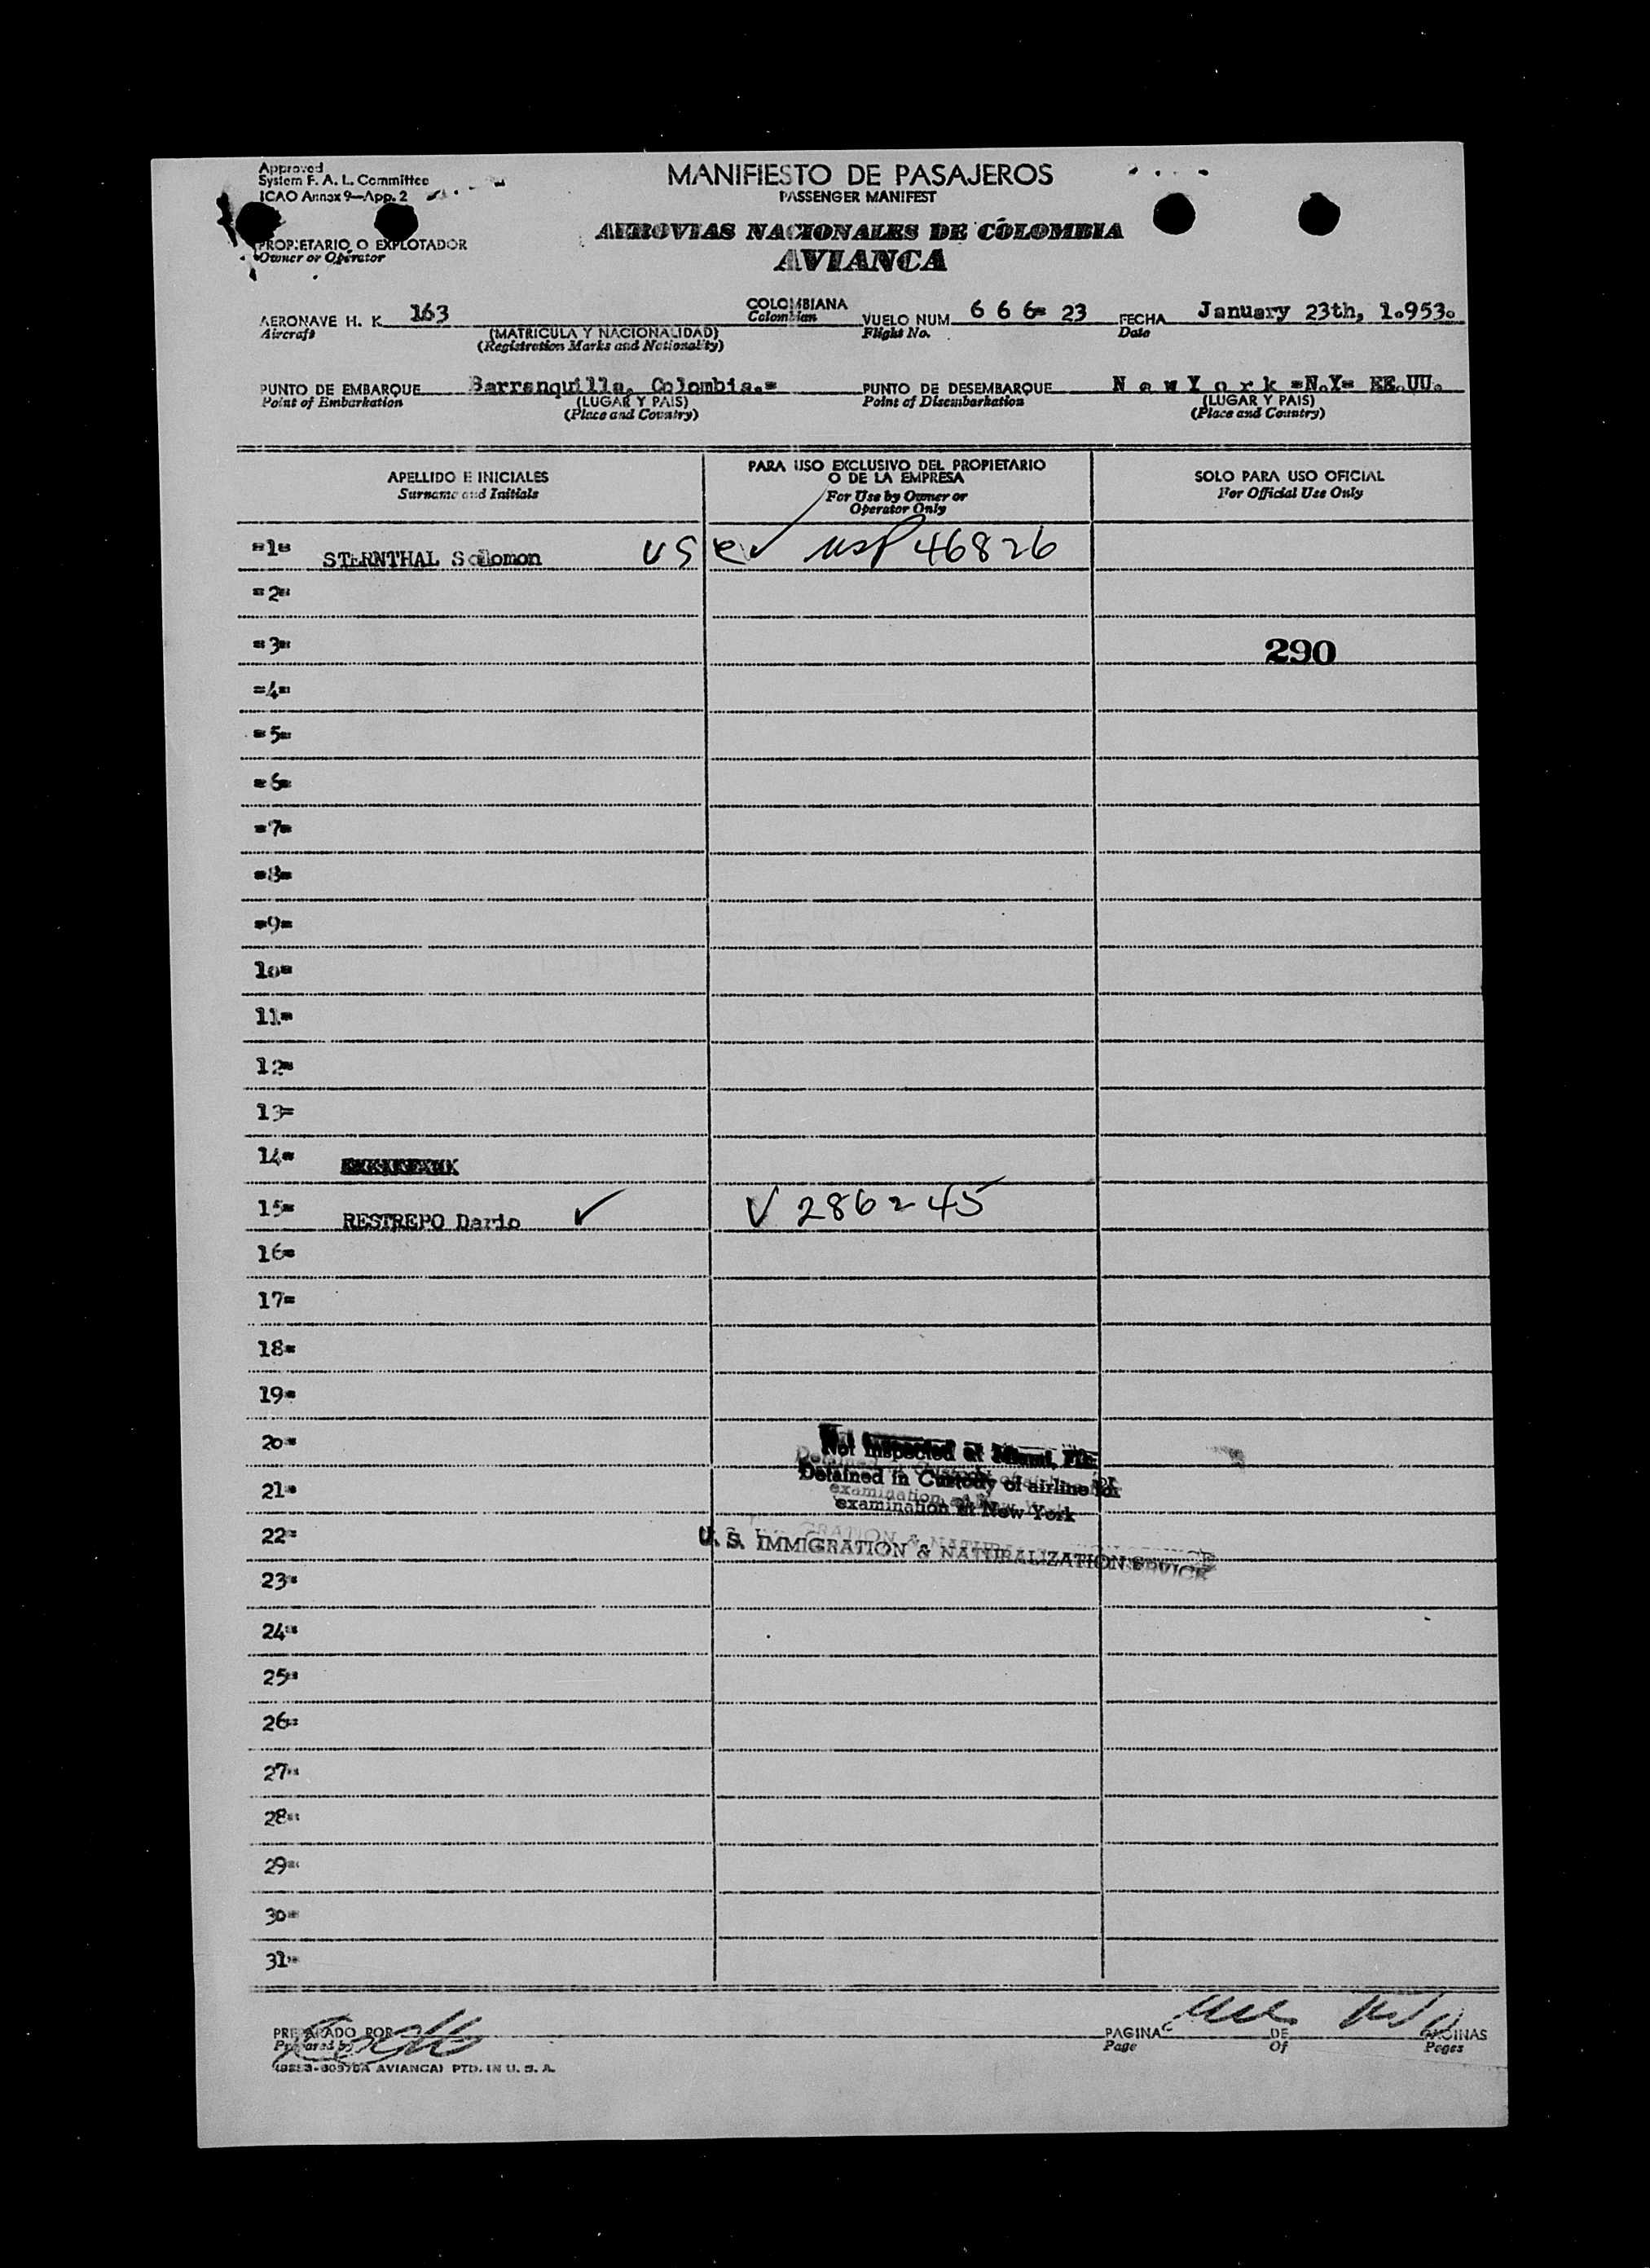 Approved
System F. A. L. Committee
ICAO Annex 9—App. 2
MANIFIESTO DE PASAJEROS
PASSENGER MANIFEST
PROPIETARIO O EXPLOTADOR
Owner or Operator
AEROVIAS NACIONALES DE COLOMBIA
AVIANCA
AERONAVE H. K. 163 COLOMBIANA VUELO NUM 6 6 6= 23 FECHA January 23th, 1.953.
Aircraft (MATRICULA Y NACIONALIDAD) Colombian Flight No. Date
(Registration Marks and Nationality)
PUNTO DE EMBARQUE Barranquilla, Colombia.= PUNTO DE DESEMBARQUE N e w Y o r k =N.Y= EE.UU.
Point of Embarkation (LUGAR Y PAIS) Point of Disembarkation (LUGAR Y PAIS)
(Place and Country) (Place and Country)
APELLIDO E INICIALES PARA USO EXCLUSIVO DEL PROPIETARIO SOLO PARA USO OFICIAL
Surname and Initials O DE LA EMPRESA For Official Use Only
For Use by Owner or
Operator Only
=1= STERNTHAL Solomon USC usp 46826
=2=
=3= 290
=4=
=5=
=6=
=7=
=8=
=9=
10=
11=
12=
13=
14=
15= RESTREPO Dario ✓ V 286245
16=
17=
18=
19=
20= Not Inspected at Miami, Fla.
21= Detained in Custody of airline for
examination at New York
22= U. S. IMMIGRATION & NATURALIZATION SERVICE
23=
24=
25=
26=
27=
28=
29=
30=
31=
PREPARADO POR PAGINA DE PAGINAS
Prepared by Page Of Pages
AVIANCA) PTD. IN U. S. A.